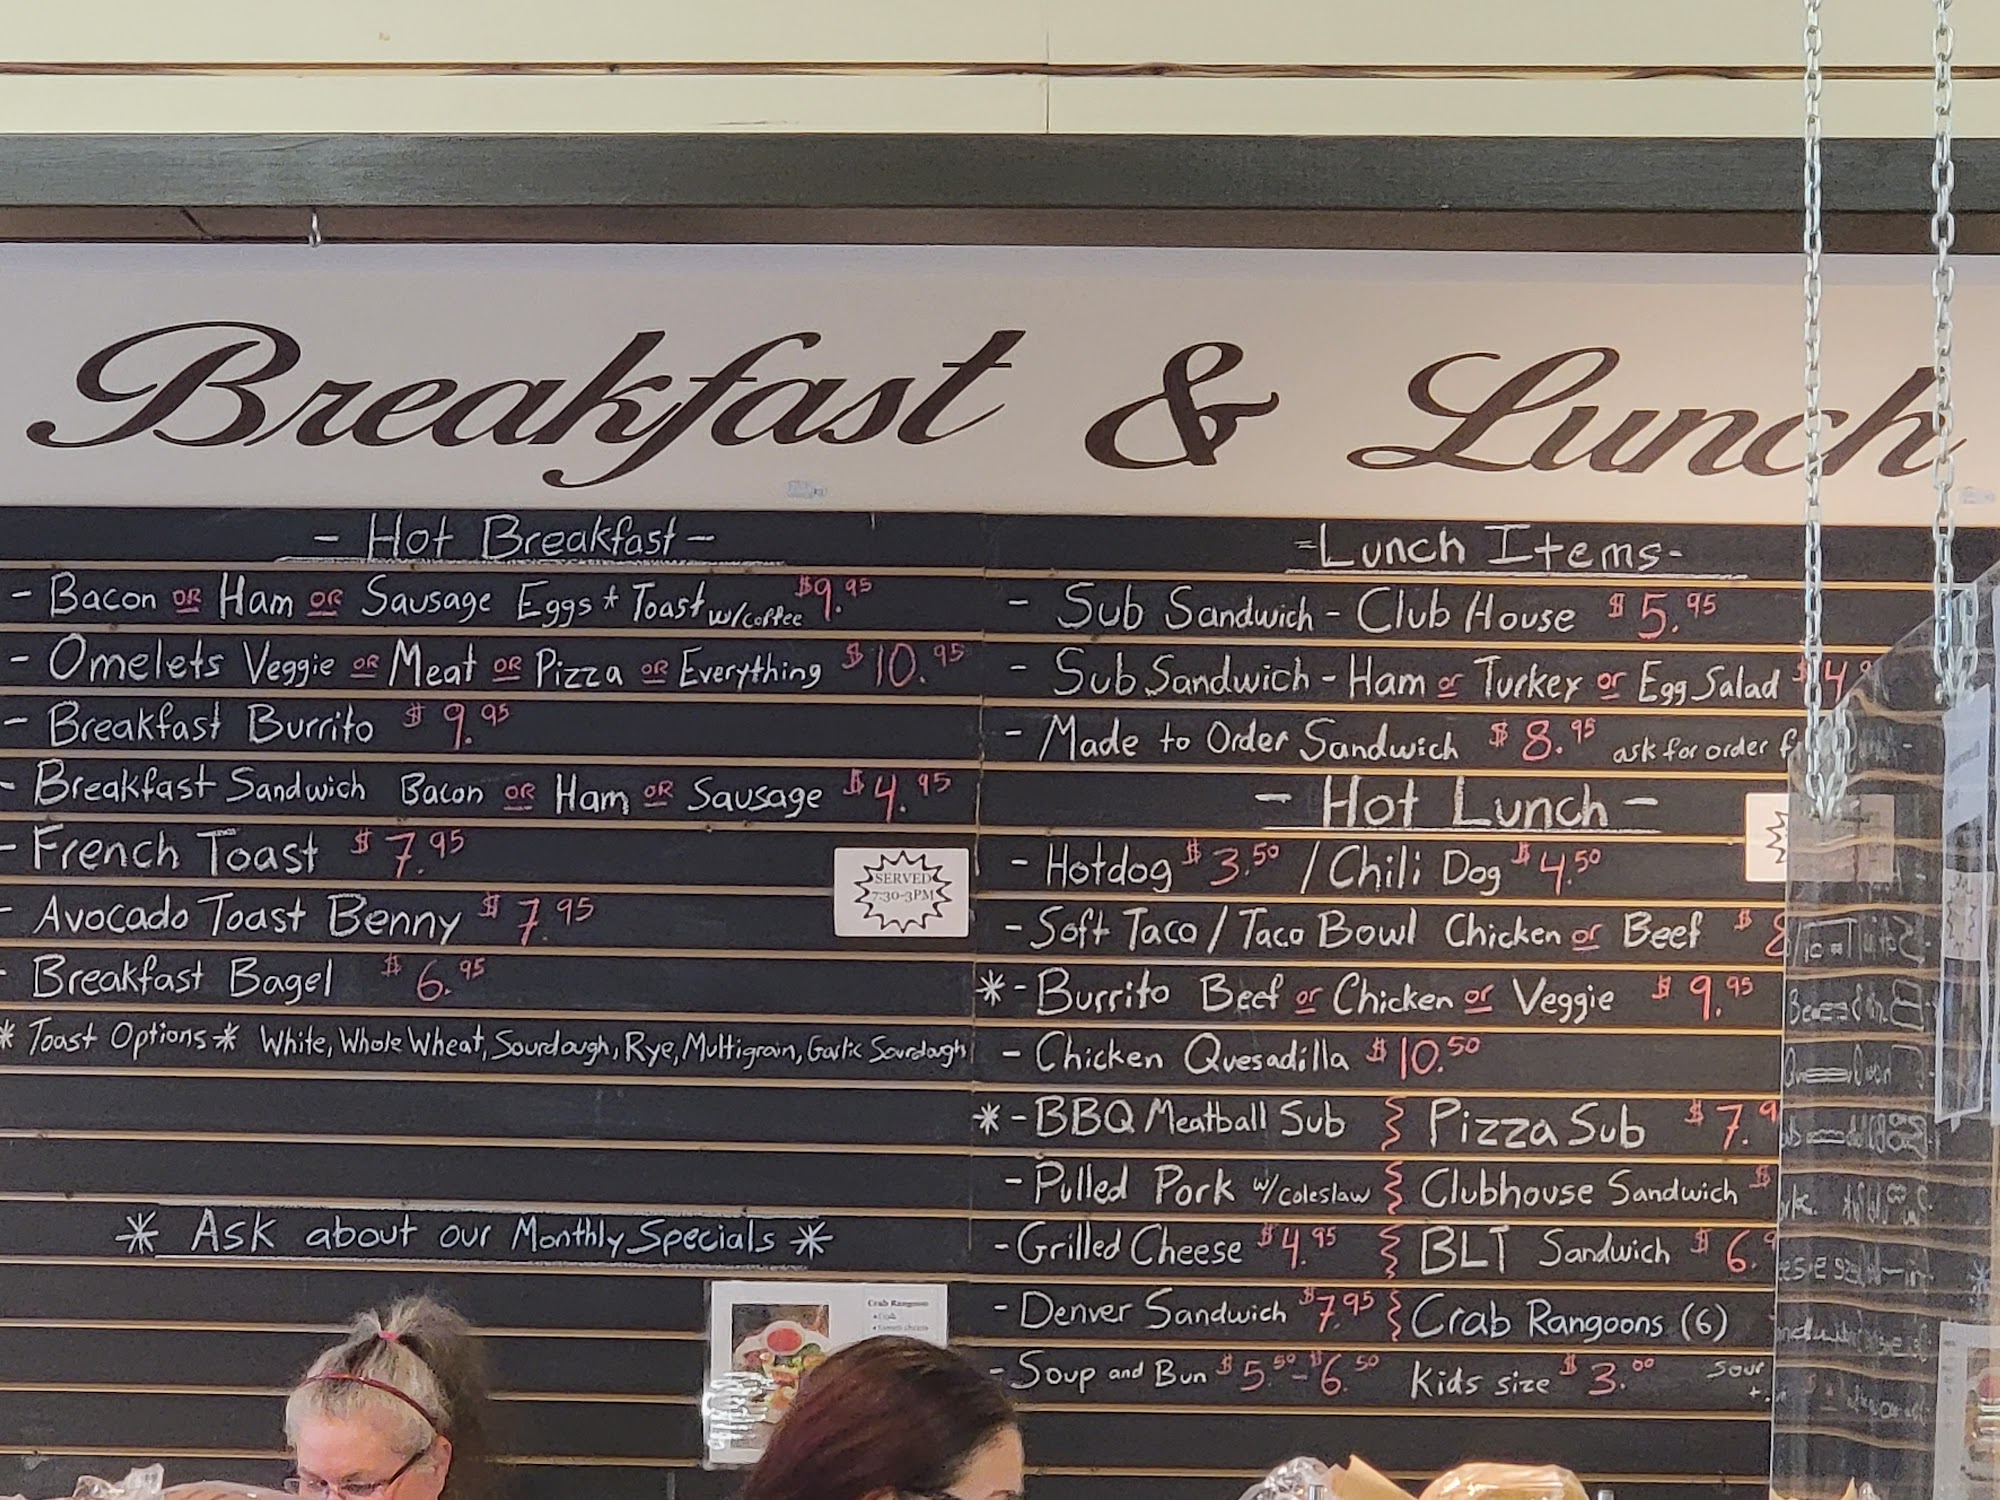 Breakfast & Lunch
- Hot Breakfast -
- Bacon OR Ham OR Sausage Eggs + Toast w/coffee $9.95
- Omelets Veggie OR Meat OR Pizza OR Everything $10.95
- Breakfast Burrito $9.95
- Breakfast Sandwich Bacon OR Ham OR Sausage $4.95
- French Toast $7.95
- Avocado Toast Benny $7.95
- Breakfast Bagel $6.95
* Toast Options * White, Whole Wheat, Sourdough, Rye, Multigrain, Garlic Sourdough
SERVED
7:30-3PM
* Ask about our Monthly Specials *
Crab Rangoons
- Lunch Items -
- Sub Sandwich - Club House $5.95
- Sub Sandwich - Ham or Turkey or Egg Salad $4.9
- Made to Order Sandwich $8.95 ask for order f
- Hot Lunch -
- Hotdog $3.50 / Chili Dog $4.50
- Soft Taco / Taco Bowl Chicken or Beef $8
* - Burrito Beef or Chicken or Veggie $9.95
- Chicken Quesadilla $10.50
* - BBQ Meatball Sub Pizza Sub $7.9
- Pulled Pork w/coleslaw Clubhouse Sandwich $
- Grilled Cheese $4.95 BLT Sandwich $6.9
- Denver Sandwich $7.95 Crab Rangoons (6)
- Soup and Bun $5.50 - $6.50 Kids size $3.00 Soup